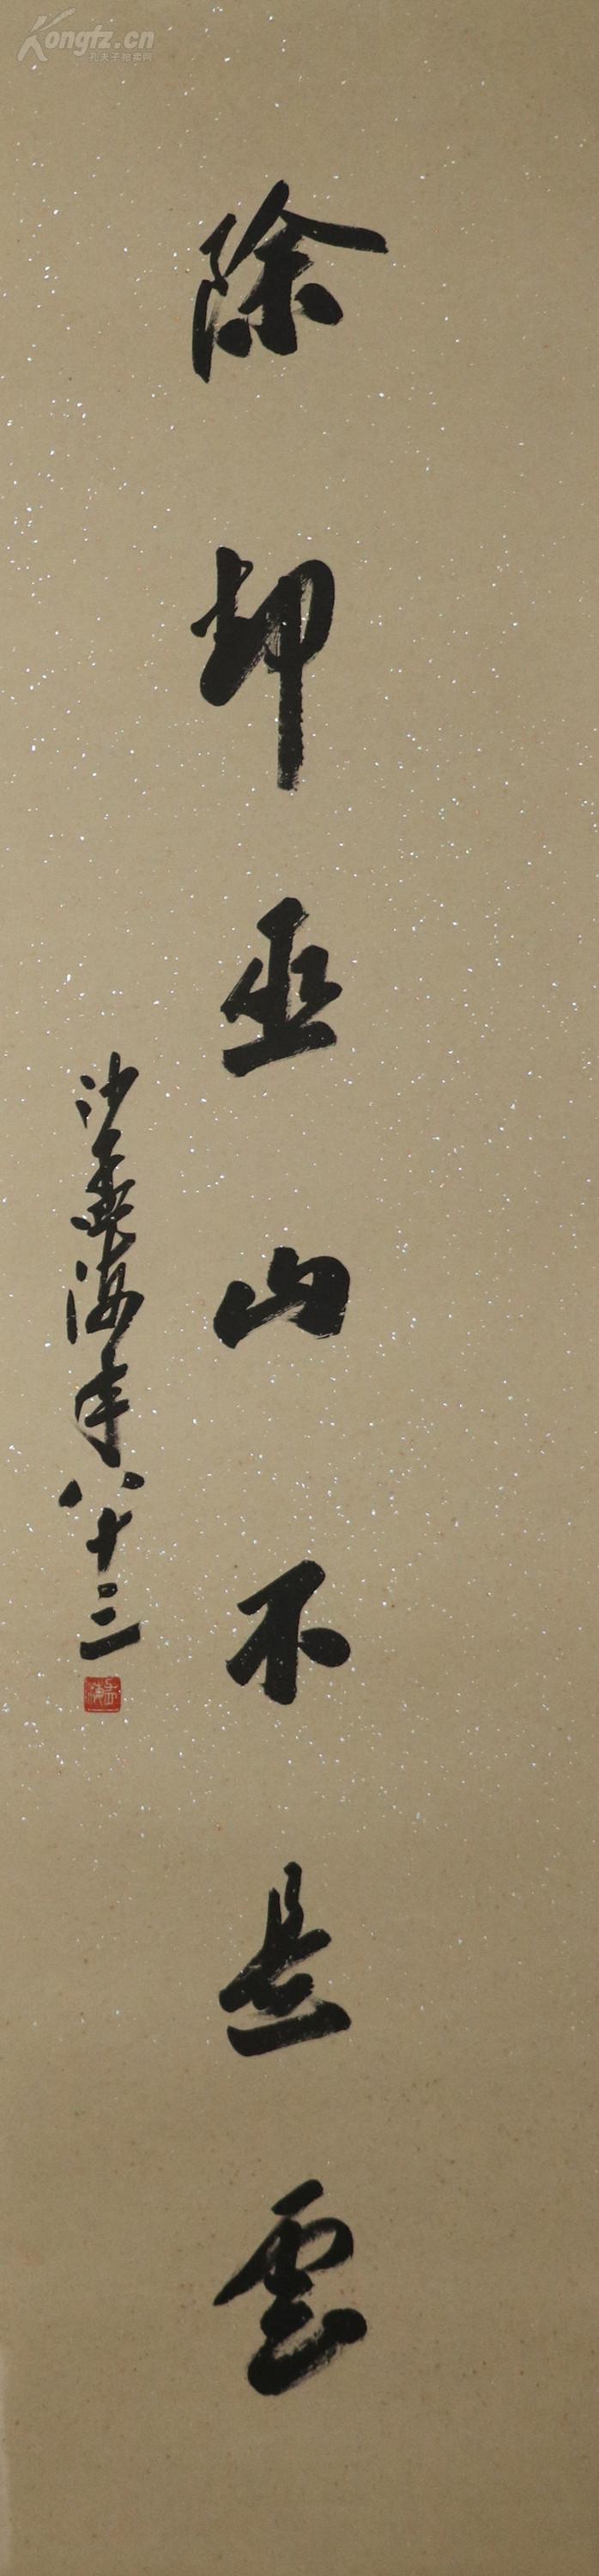 Kongfz.cn
孔夫子拍卖网
除却巫山不是雲
沙孟海年八十三